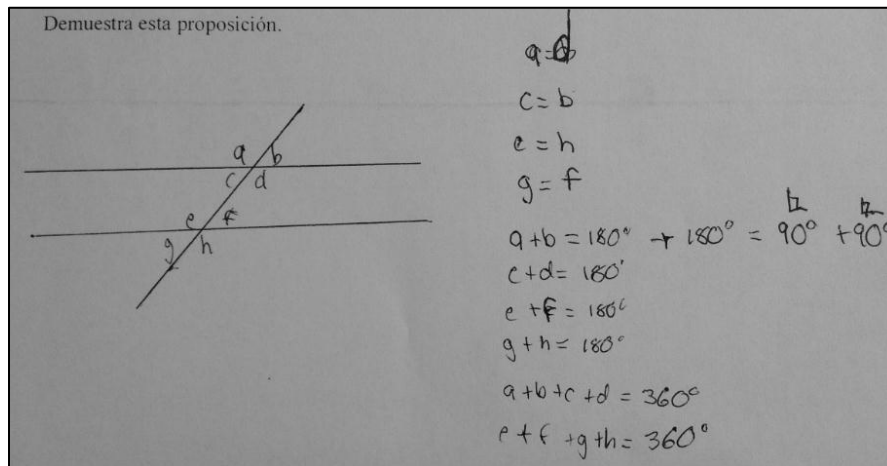 Demuestra esta proposición.
a b
c d
e f
g h
a=d
c=b
e=h
g=f
a+b=180° → 180° = 90° + 90°
c+d=180°
e+f=180°
g+h=180°
a+b+c+d=360°
e+f+g+h=360°